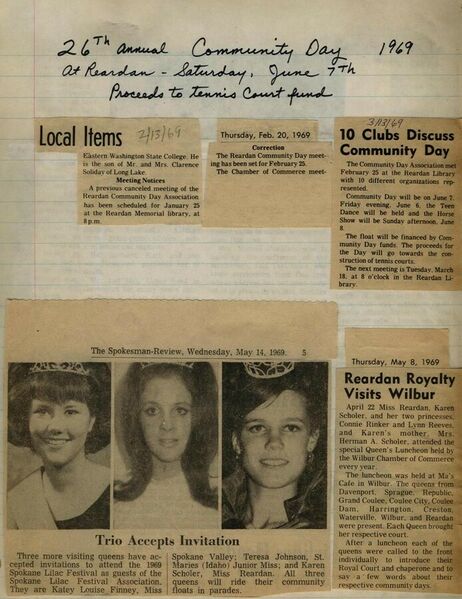 26th Annual Community Day 1969
At Reardan - Saturday, June 7th
Proceeds to tennis Court fund
Local Items
2/13/69
Eastern Washington State College. He
is the son of Mr. and Mrs. Clarence
Soliday of Long Lake.
Meeting Notices
A previous canceled meeting of the
Reardan Community Day Association
has been scheduled for January 25
at the Reardan Memorial library, at
8 p.m.
Thursday, Feb. 20, 1969
Correction
The Reardan Community Day meet-
ing has been set for February 25.
The Chamber of Commerce meet-
3/13/69
10 Clubs Discuss
Community Day
The Community Day Association met
February 25 at the Reardan Library
with 10 different organizations rep-
resented.
Community Day will be on June 7.
Friday evening, June 6, the Teen
Dance will be held and the Horse
Show will be Sunday afternoon, June
8.
The float will be financed by Com-
munity Day funds. The proceeds for
the Day will go towards the con-
struction of tennis courts.
The next meeting is Tuesday, March
18, at 8 o'clock in the Reardan Li-
brary.
The Spokesman-Review, Wednesday, May 14, 1969. 5
Trio Accepts Invitation
Three more visiting queens have ac-
cepted invitations to attend the 1969
Spokane Lilac Festival as guests of the
Spokane Lilac Festival Association.
They are Katey Louise Finney, Miss
Spokane Valley; Teresa Johnson, St.
Maries (Idaho) Junior Miss; and Karen
Scholer, Miss Reardan. All three
queens will ride their community
floats in parades.
Thursday, May 8, 1969
Reardan Royalty
Visits Wilbur
April 22 Miss Reardan, Karen
Scholer, and her two princesses,
Connie Rinker and Lynn Reeves,
and Karen's mother, Mrs.
Herman A. Scholer, attended the
special Queen's Luncheon held by
the Wilbur Chamber of Commerce
every year.
The luncheon was held at Ma's
Cafe in Wilbur. The queens from
Davenport, Sprague, Republic,
Grand Coulee, Coulee City, Coulee
Dam, Harrington, Creston,
Waterville, Wilbur, and Reardan
were present. Each Queen brought
her respective court.
After a luncheon each of the
queens were called to the front
individually to introduce their
Royal Court and chaperone and to
say a few words about their
respective community days.